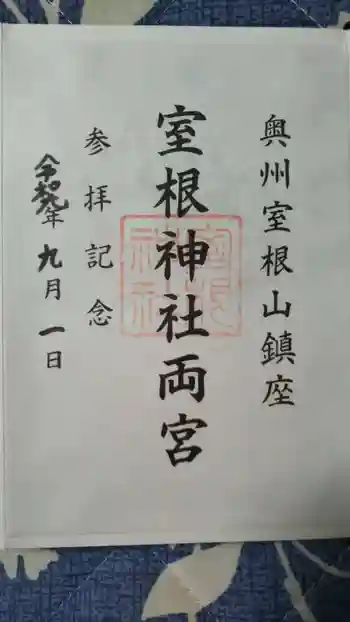 奥州室根山鎮座
室根神社両宮
室根神社
参拝記念
令和元年九月一日